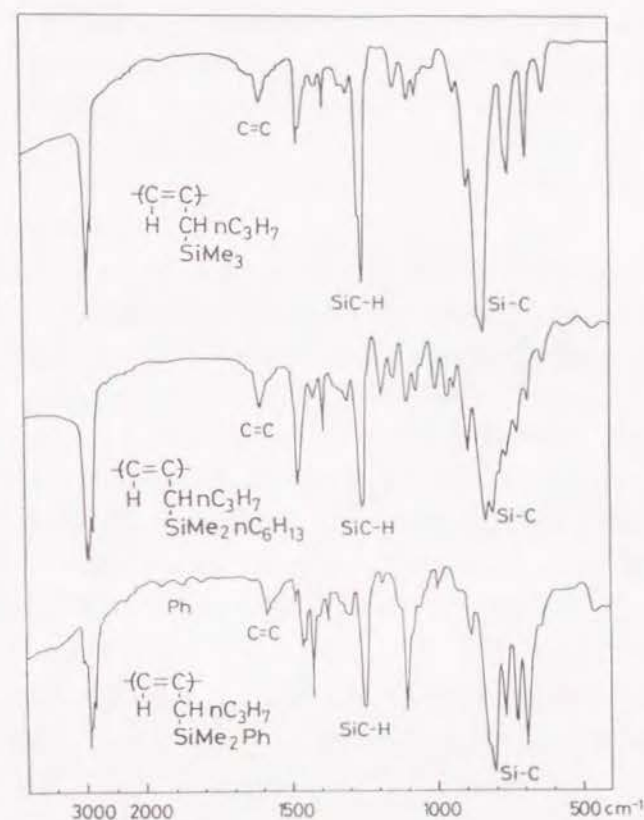 C=C
-(C=C)-
H CH nC₃H₇
SiMe₃
SiC-H
Si-C
C=C
-(C=C)-
H CH nC₃H₇
SiMe₂ nC₆H₁₃
SiC-H
Si-C
Ph
C=C
-(C=C)-
H CH nC₃H₇
SiMe₂Ph
SiC-H
Si-C
3000 2000 1500 1000 500 cm⁻¹